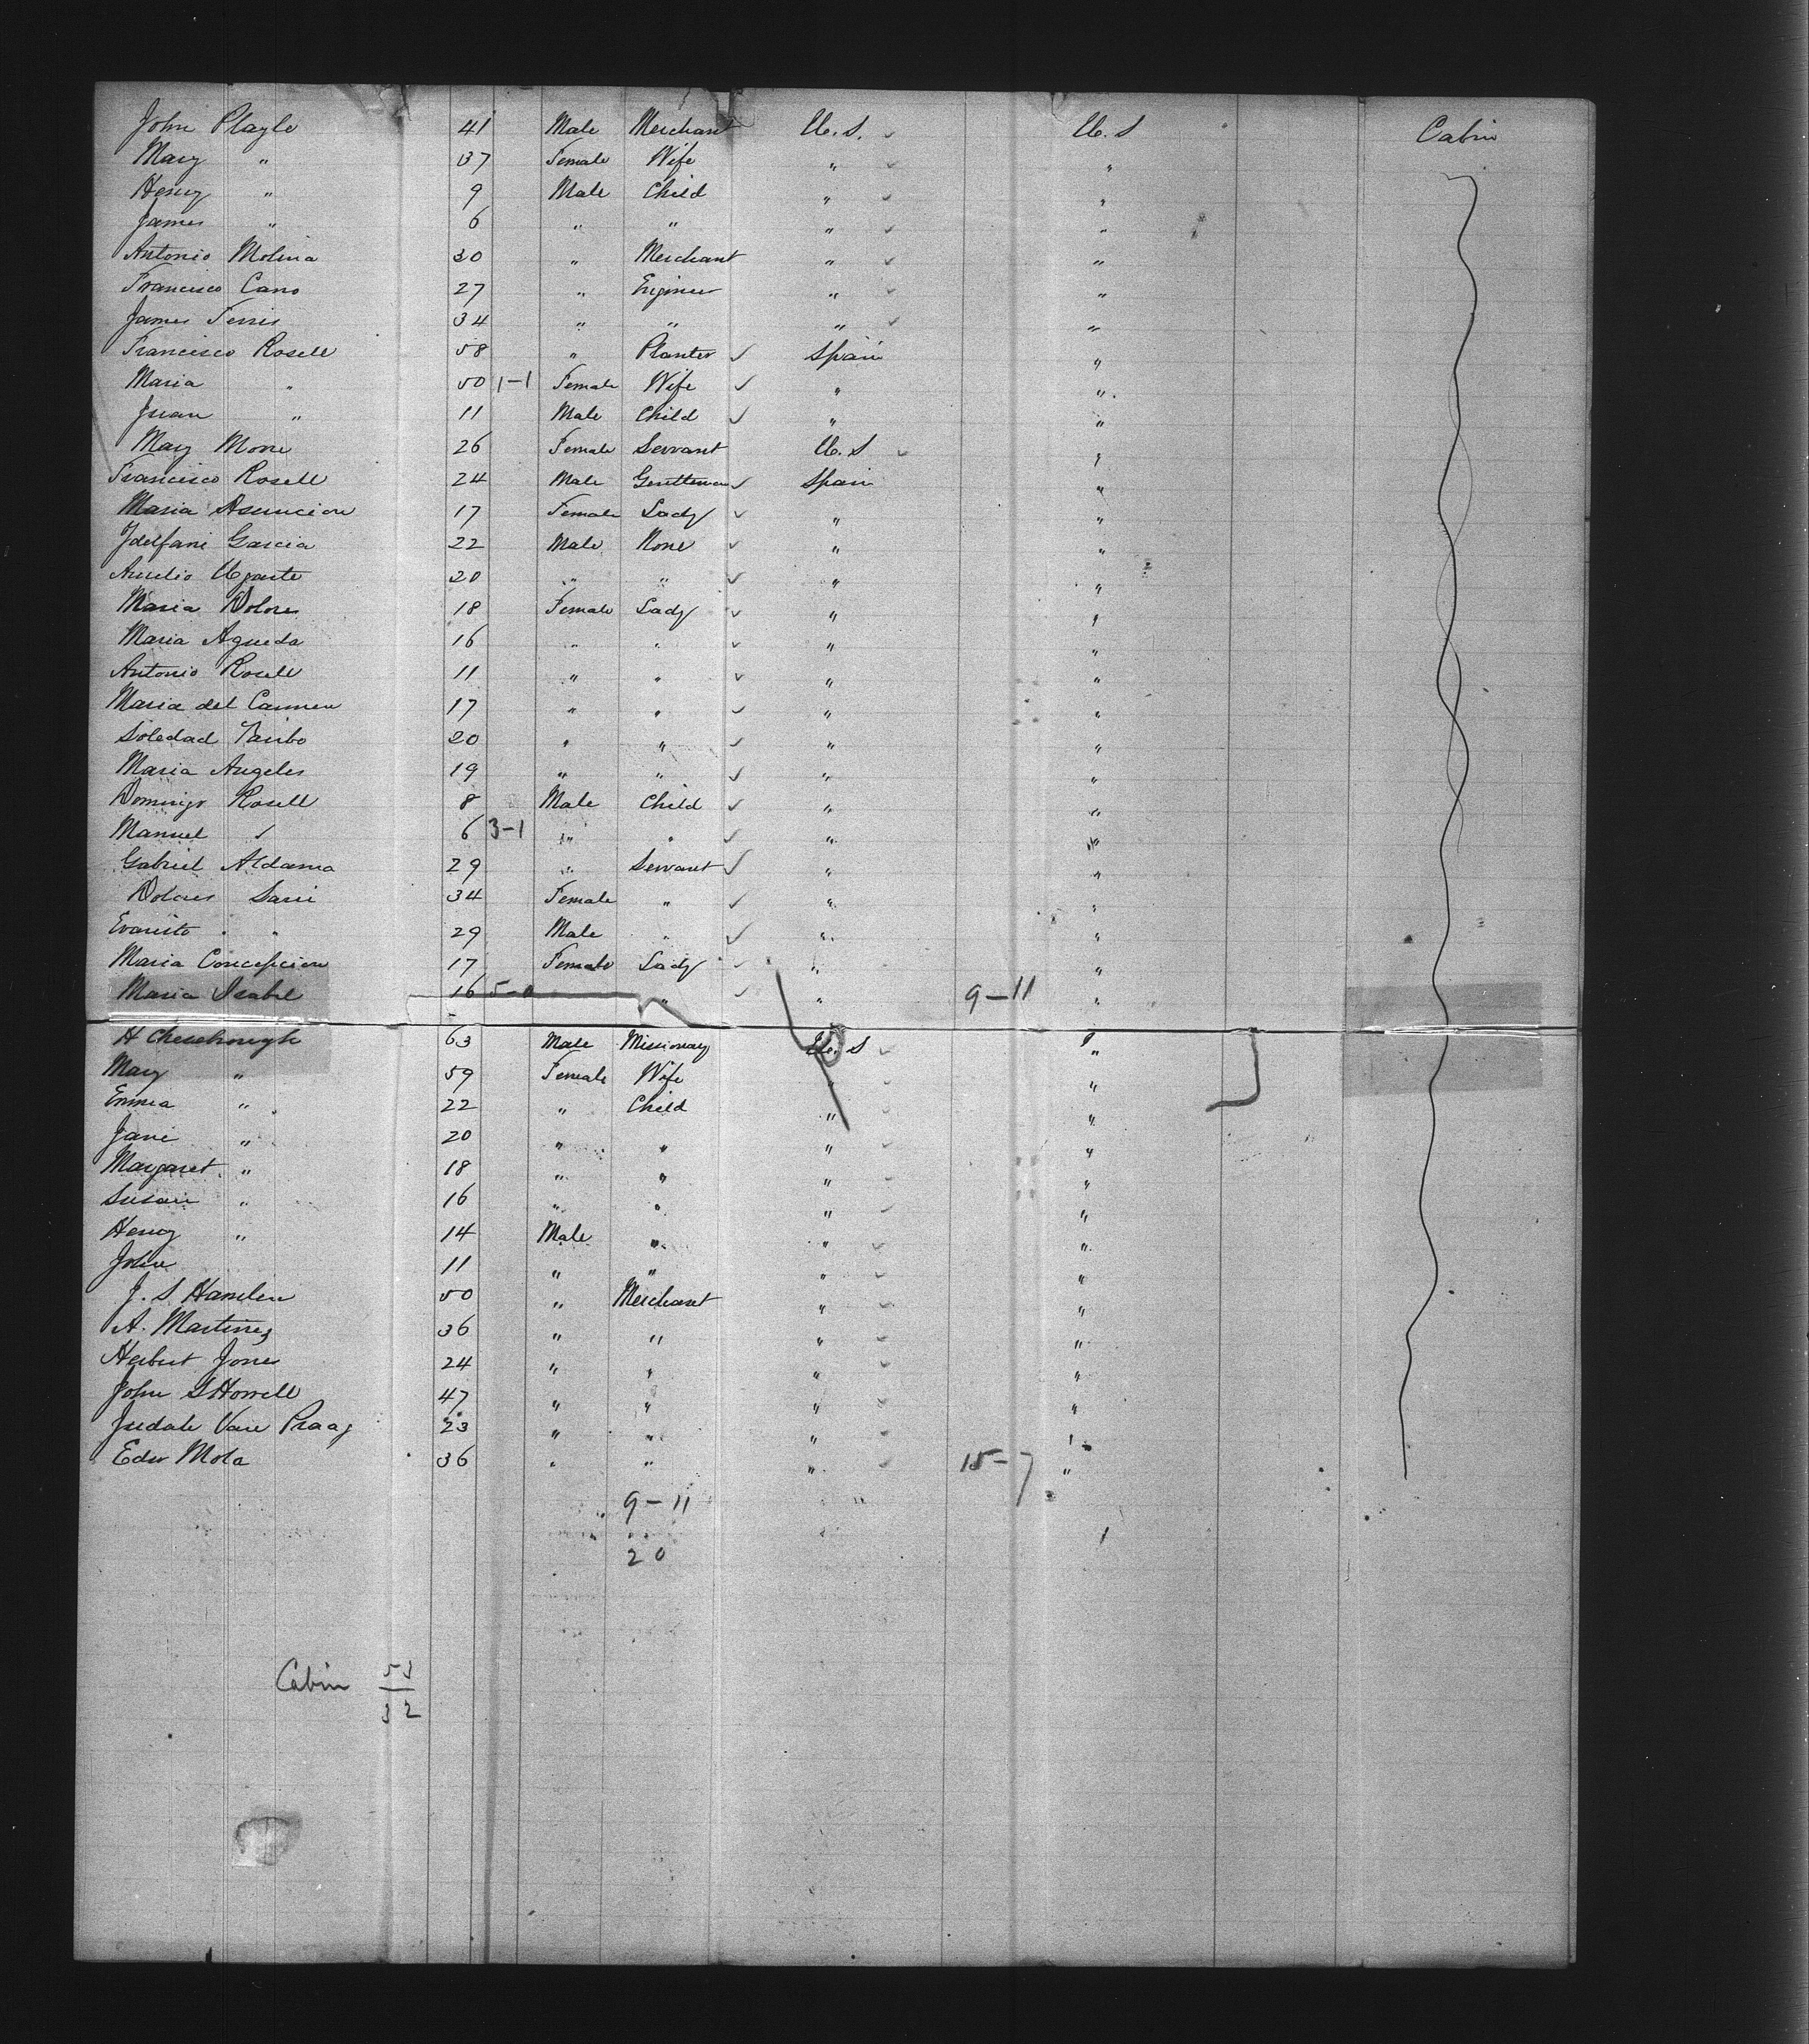 John Playle 41 Male Merchant U. S. U. S Cabin
Mary " 37 Female Wife " "
Henry " 9 Male Child " "
James " 6 " " " "
Antonio Molina 30 " Merchant " "
Francisco Cano 27 " Engineer " "
James Ferris 34 " " " "
Francisco Rosell 58 " Planter Spain "
Maria " 50 1-1 Female Wife " "
Juan " 11 Male Child " "
Mary Mone 26 Female Servant U. S "
Francisco Rosell 24 Male Gentleman Spain "
Maria Asuncion 17 Female Lady " "
Garcia 22 Male None " "
Ugarte 20 " " " "
Maria Dolores 18 Female Lady " "
Maria Agueda 16 " " " "
Antonio Rosell 11 " " " "
Maria del Carmen 17 " " " "
Soledad 20 " " " "
Maria Angeles 19 " " " "
Domingo Rosell 8 Male Child " "
Manuel " 6 3-1 " " " "
Gabriel Aldama 29 " Servant " "
Dolores 34 Female " " "
Evaristo " 29 Male " " "
Maria Concepcion 17 Female Lady " "
Maria Isabel 16 5-0 " " 9-11 "
H Chesebrough 63 Male Missionary U. S "
Mary " 59 Female Wife " "
Emma " 22 " Child " "
Jane " 20 " " " "
Margaret " 18 " " " "
Susan " 16 " " " "
Henry " 14 Male " " "
John 11 " " " "
J. S Hamlen 50 " Merchant " "
A. Martinez 36 " " " "
Herbert Jones 24 " " " "
John S Howell 47 " " " "
Van Praag 23 " " " "
Edw Mola 36 " " " 15-7 "
9-11
20
Cabin 53
32